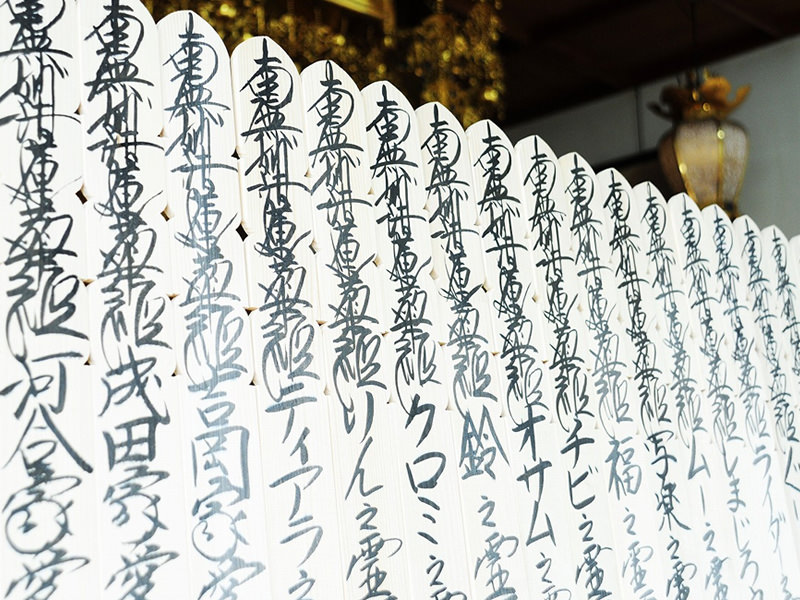 南無妙法蓮華経河合家愛
南無妙法蓮華経成田家愛
南無妙法蓮華経吉岡家愛
南無妙法蓮華経ティアラ之
南無妙法蓮華経りん之霊
南無妙法蓮華経クロミ之
南無妙法蓮華経鈴之霊
南無妙法蓮華経オサム之
南無妙法蓮華経チビ之霊
南無妙法蓮華経福之霊
南無妙法蓮華経写楽之
南無妙法蓮華経ムー之霊
南無妙法蓮華経しまじろ
南無妙法蓮華経ライダ